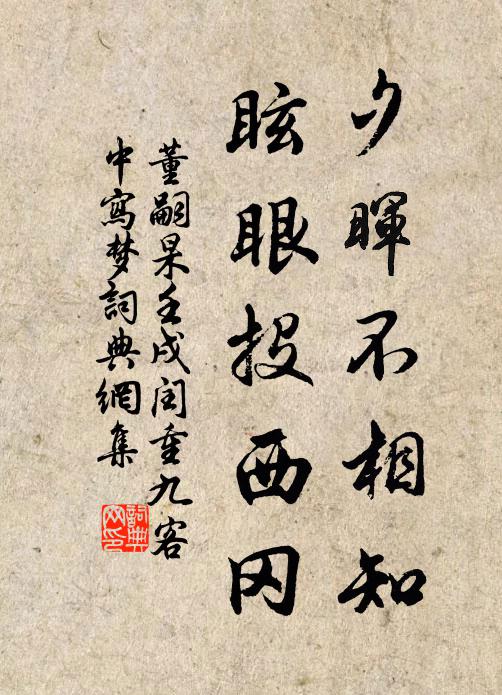 夕暉不相知
眩眼投西冈
董嗣杲壬戌闰重九客
中寫梦詞典網集
詞典網印